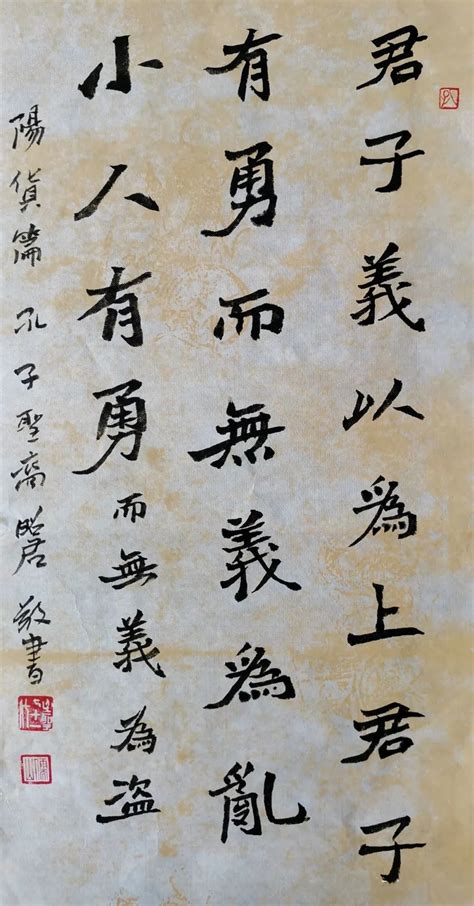 君子義以為上君子
有勇而無義為亂
小人有勇而無義為盜
陽貨篇孔子聖裔敬書